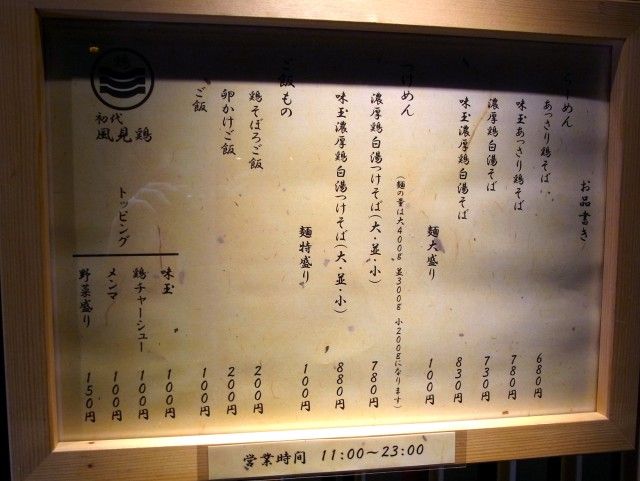 お品書き
らーめん
あっさり鶏そば 680円
味玉あっさり鶏そば 780円
濃厚鶏白湯そば 730円
味玉濃厚鶏白湯そば 830円
麺大盛り 100円
つけめん
(麺の量は大400g 並300g 小200gになります)
濃厚鶏白湯つけそば(大・並・小) 780円
味玉濃厚鶏白湯つけそば(大・並・小) 880円
麺特盛り 100円
ご飯もの
鶏そぼろご飯 200円
卵かけご飯 200円
ご飯 100円
トッピング
味玉 100円
鶏チャーシュー 100円
メンマ 100円
野菜盛り 150円
初代
風見鶏
営業時間 11:00〜23:00